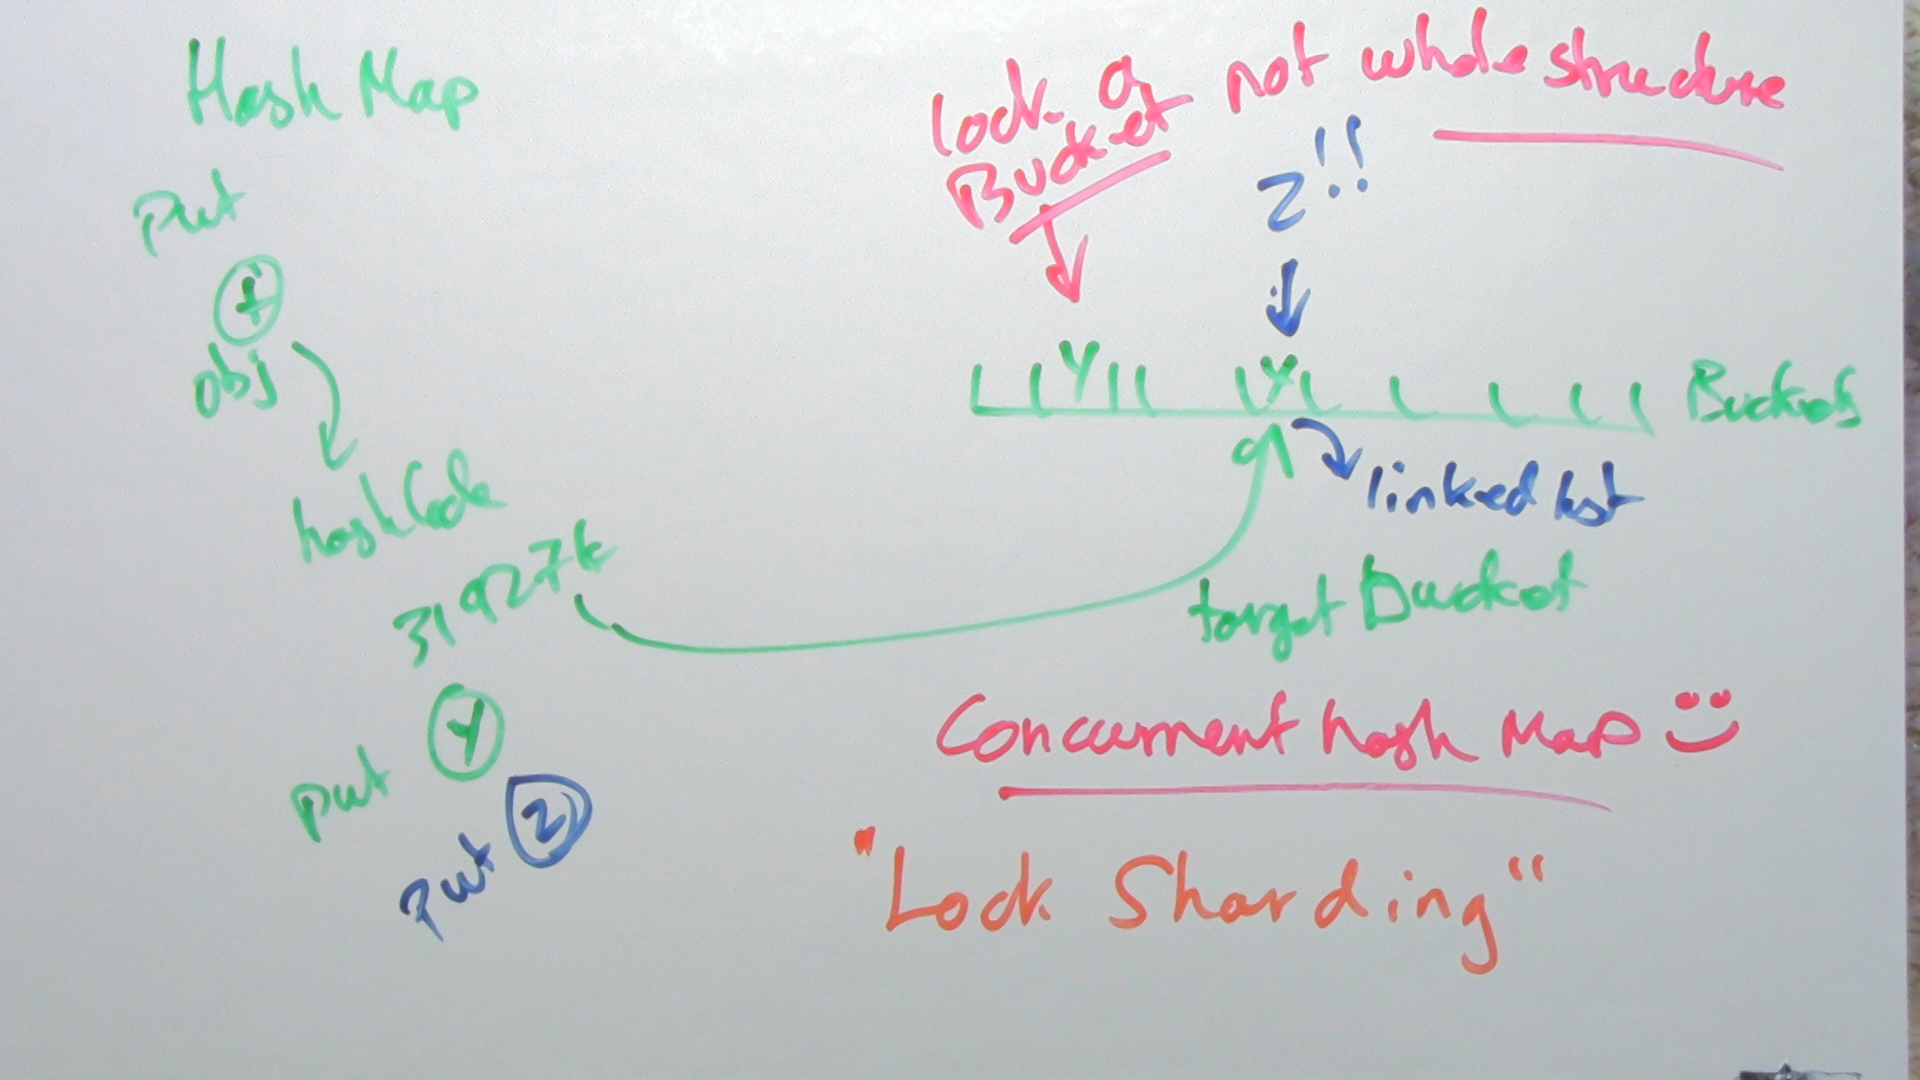 Hash Map
put
obj
hashCode
31927k
put Y
put Z
lock a
Bucket not whole structure
Z!!
Y
Buckets
linked list
target Bucket
Concurrent hash Map
"Lock Sharding"